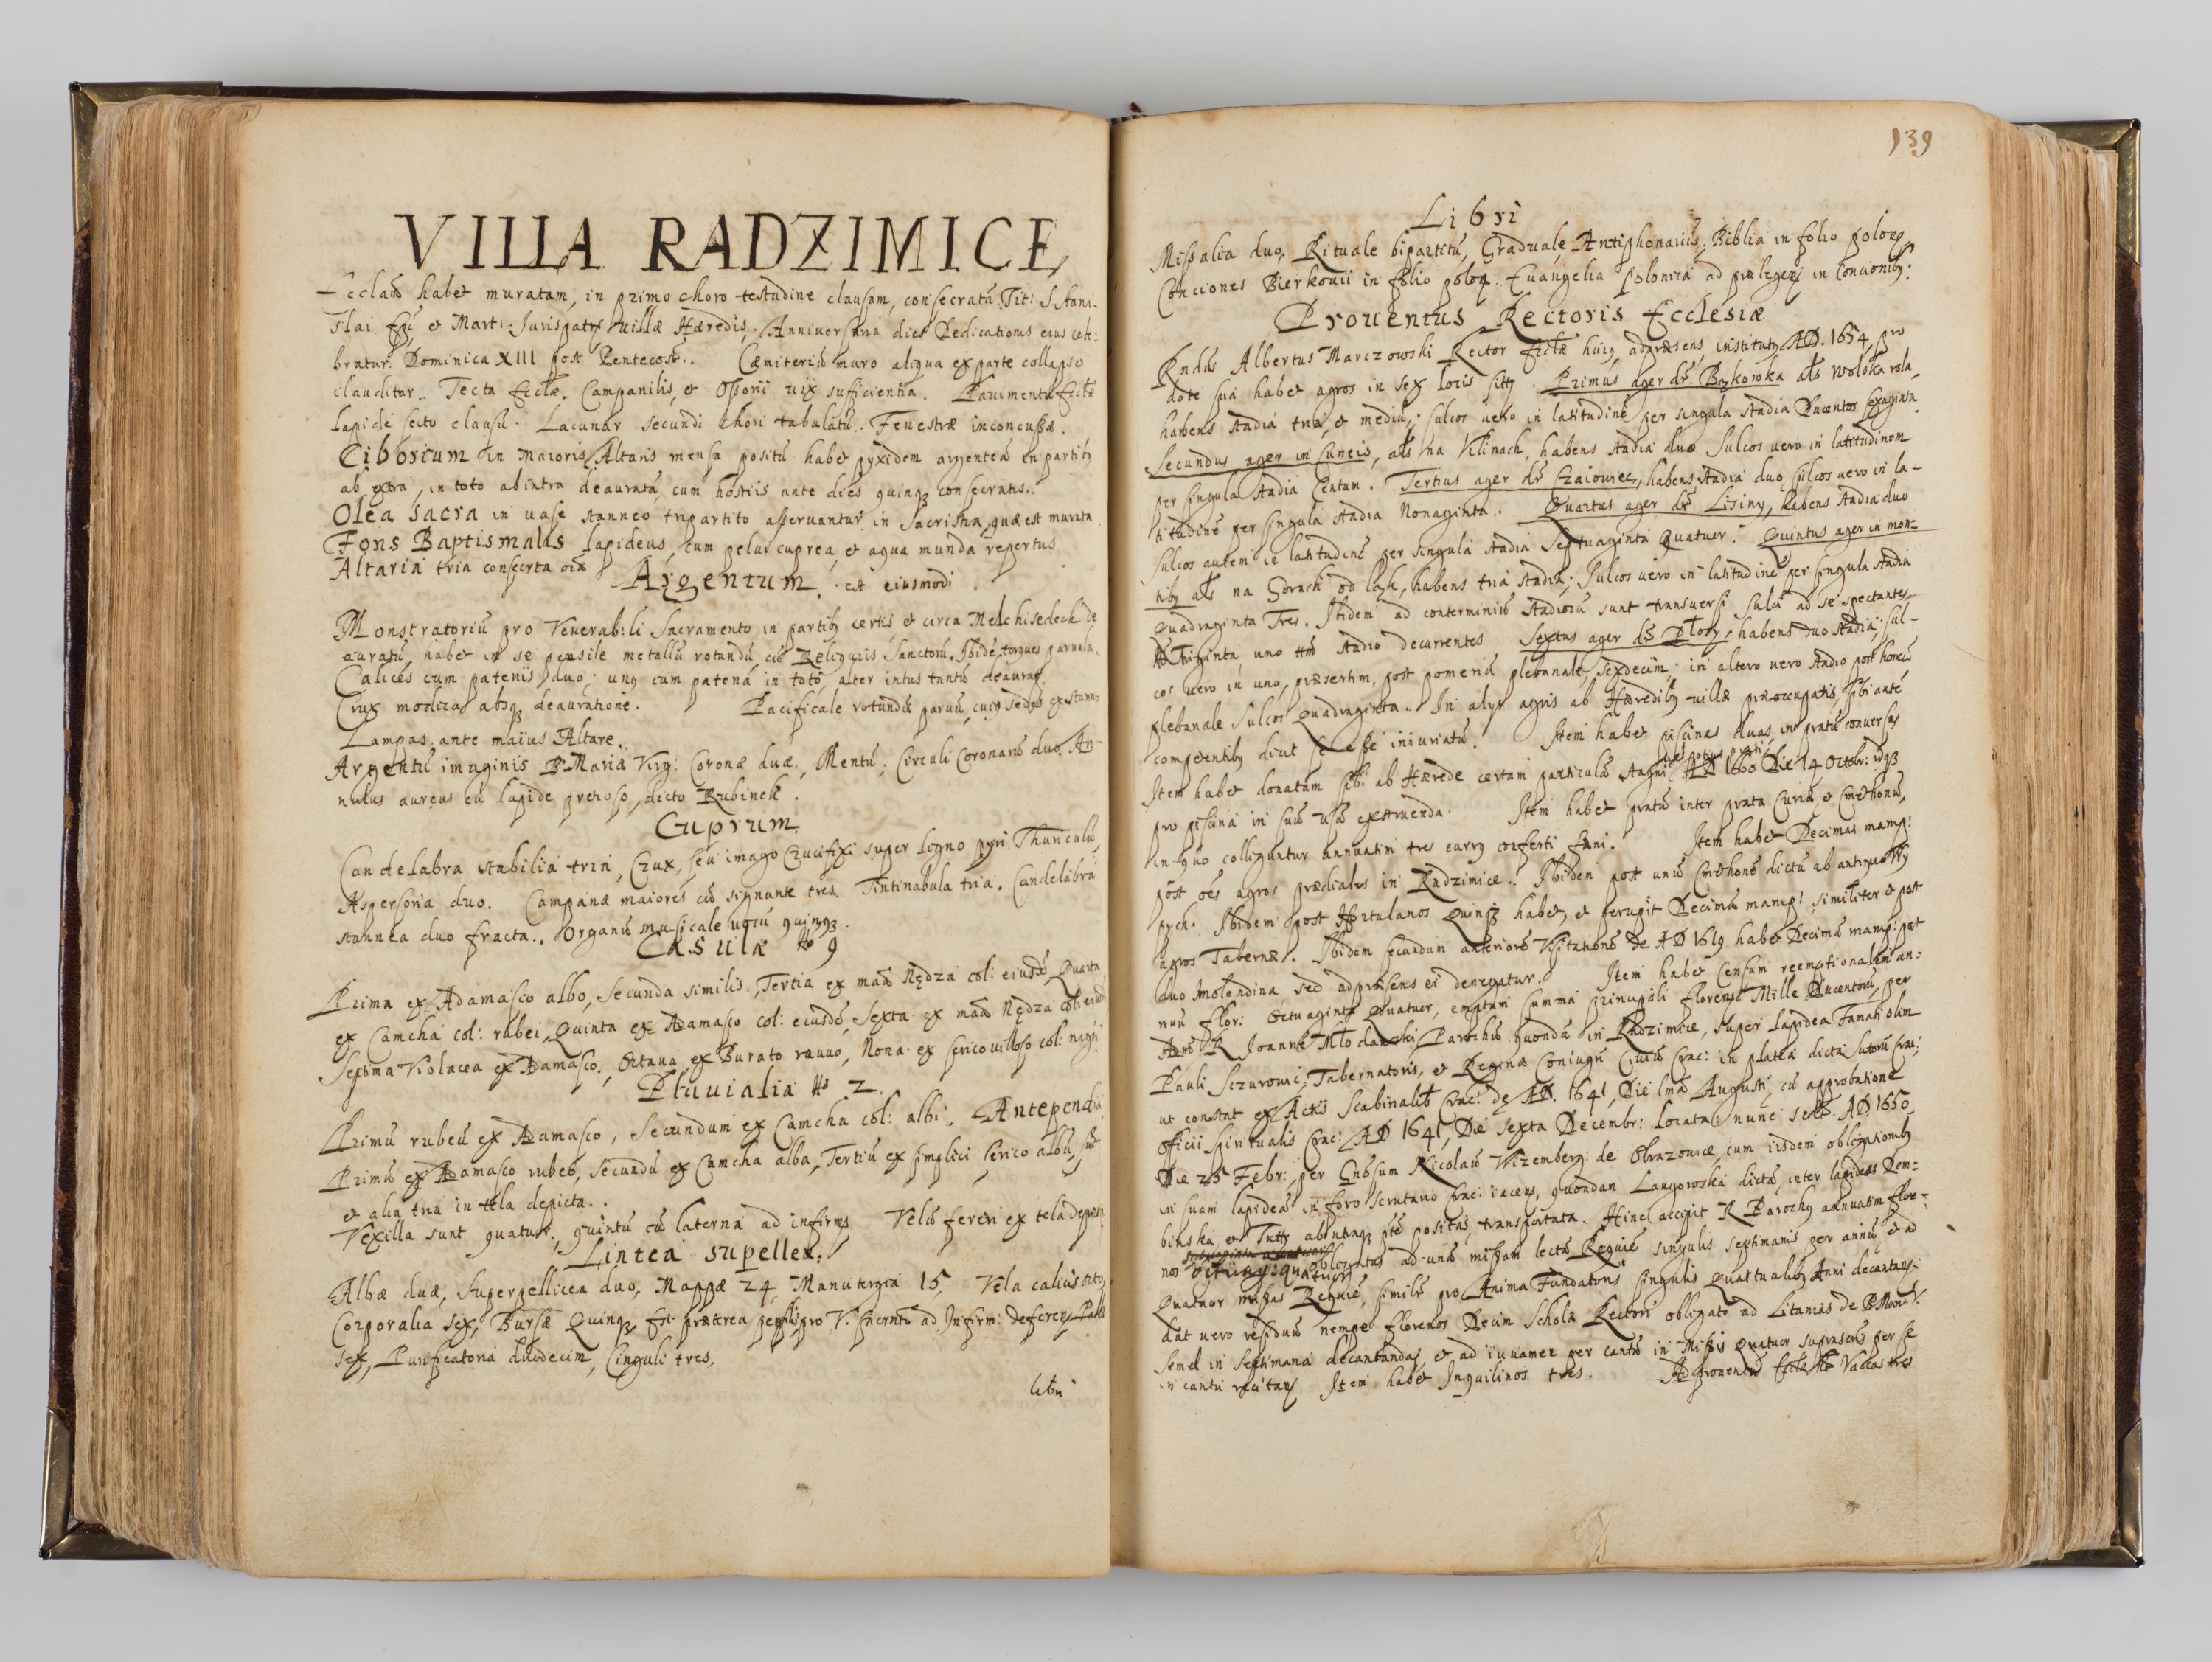 VILLA RADZIMICE
Ecclam habet muratam, in primo choro testudine clausam, consecratã. Tit: S. Stani-
slai Epi et Mart: Juris patrs villæ Hæredis. Anniversaria dies Dedicationis eius cele:
bratur Dominica XIII post Pentecost:. Cæmiteriũ muro aliqua ex parte collapso
clauditur. Tecta Eccłæ. Campanilis, et Ossorii vix suficientia. Pavimentũ Eccłæ
lapide secto clausũ. Lacunar secundi chori tabulatũ. Fenestræ inconcussæ.
Ciborium in Maioris Altaris mensa positũ habet pyxidem argenteã in partibꝫ
ab extra, in toto ab intra deauratã, cum hostiis ante dies quinqꝫ consecratis.
Olea sacra in vase stanneo tripartito asservantur in Sacristia, quæ est murata.
Fons Baptismalis lapideus, cum pelui cuprea, et aqua munda repertus
Altaria tria consecrta oia Argentum. est eiusmodi
Monstratoriũ pro Venerabili Sacramento in partibꝫ certis et circa Melchisedech de
auratũ, habet in se pensile metallũ rotundũ, cũ Reliquiis Sanctorũ. Ibidẽ torques parvula.
Calices cum patenis duo; unꝫ cum patena in toto, alter intus tantũ deaurat.
Crux modica absqꝫ deauratione. Pacificale rotundũ parvũ, cuiꝫ sedes ex stanno
Lampas ante maius Altare.
Argentũ imaginis B. Mariæ Virg: Coronæ duæ, Mentũ, Circuli Coronarũ duo. An-
nulus aureus cũ lapide pretioso, dicto Rubinek.
Cuprum
Candelabra stabilia tria, Crux, seu imago Crucifixi super ligno pyri. Thuriculũ,
Aspersoria duo. Campanæ maiores cũ signante tres. Tintinabula tria. Candelabra
stannea duo fracta. Organũ musicale vocũ quinqꝫ.
Casulæ No 9
Prima ex Adamasco albo, Secunda similis, Tertia ex mad Nędza col: eiusdẽ, Quarta
ex Camcha col: rubei, Quinta ex Adamasco col: eiusdẽ, Sexta ex mad Nędza col: eiusd
Septima Violacea ex Adamasco, Octava ex Burato ravuo, Nona ex serico villoso col: nigri
Pluvialia No 2.
Primũ rubeũ ex Adamasco, Secundum ex Camcha col: albi. Antependia
Primũ ex Adamasco rubeo, Secundũ ex Camcha alba, Tertiũ ex simplici serico albũ, sũt
et alia tria in tela depicta.
Vexilla sunt quatuor, quintũ cũ laterna ad infirmꝫ Velũ feretri ex tela
Lintea supellex.
Albæ duæ, Superpellicea duo, Mappæ 24, Manutergia 15, Vela calicis octo,
Corporalia sex, Bursæ Quinqꝫ, Est præterea pro V. Sacrmto ad Infirm: deferens. Pallæ
sex, Purificatoria duodecim, Cinguli tres.
Libri
139
Libri
Missalia duo, Rituale bipartitũ, Graduale, Antiphonariũ, Biblia in folio polon
Conciones Bierkovii in folio polon. Euangelia Polonica ad prælegen in Concionibꝫ:
Proventus Rectoris Ecclesiæ
Rndus Albertus Marczowski Rector Eccłæ huiꝫ ad præsens, institutꝫ AD. 1654, pro
dote sua habet agros in sex locis sittꝫ. Primus ager dr. Bożkowka als Wolska rola,
habens stadia tria et mediũ; sulcos vero in latitudinẽ per singula stadia Ducentos sexaginta.
Secundus ager in Cuneis, als na Klinach, habens stadia duo Sulcos vero in latitudinem
per singula stadia Centum. Tertius ager dr Czaiowiec, habens stadia duo sulcos vero in la-
titudinẽ per singula stadia Nonaginta. Quartus ager dr Lisiny, habens stadia duo
Sulcos autem in latitudinẽ per singula stadia Septuaginta Quatuor. Quintus ager in mon-
tibꝫ als na Gorach od, habens tria stadia; Sulcos vero in latitudinẽ per singula stadia
Quadraginta Tres. Ibidem ad conterminiũ stadiorũ sunt transversi sulci ad se spectantes
Triginta, uno stadio decurrentes Sextus ager dr Płosy, habens duo stadia; sul-
cos vero in uno, præsertim, post pomeriũ plebanale sexdecim; in altero vero stadio post horreũ
plebanale sulcos Quadraginta. In alys agris ab Hæredibꝫ villæ præoccupatis, sibi ante
competentibꝫ dicit se esse iniuriatũ. Item habet piscinas duas, in pratũ conversas
Item habet donatam sibi ab Hærede certam particulã stagni AD 1660 Die 14 Octobr: idqꝫ
pro piscina in suũ usũ exstruenda. Item habet pratũ inter prata Curiæ et Cmethonũ,
in quo colliguntur annuatim tres currꝫ conferti fæni. Item habet Decimas manip:
post oẽs agros prædiales in Radzimice. Ibidem post unũ Cmethonẽ dictũ ab antiquo Wy
pych. Ibidem post Hortulanos Quinqꝫ habet, et percipit Decimã manip: similiter et post
agros Tabernæ. Ibidem secundum anteriorẽ Visitationẽ de AD 1619 habet Decimã manip: post
duo molendina sed ad præsens ei denegatur. Item habet Censum reemptionalem an-
nuũ flor: Octuaginta Quatuor, emptum summa principali florenorũ Mille Ducentorũ, per
Adm R Joannẽ Młodawski Parochũ quondã in Radzimice, super lapidea Famati olim
Pauli Sczurowic, Tabernatoris, et Reginæ Coniugũ Civiũ Crac: in platea dicta Sutorũ Crac:
ut constat ex Actis Scabinalibꝫ Crac: de AD. 1641, Die ima Augusti, cũ approbatione
Officii Spiritualis Crac: AD 1641, Die sexta Decembr: locata: nunc AD. 1650
Die 25 Febr: per Gnosum Nicolaũ Wizemberg de Obrazowice, cum iisdem obligationibꝫ
in suam lapideã in foro scrutario Crac: iacen, quondam Langowska dictã, inter lapideas Dem-
binska et Tutty ab utraqꝫ pte positas, transportata. Hinc accipit R Parochꝫ annuatim flore-
nos Octuag: quatuor obligatus ad unã missam lectã Requiẽ singulis septimanis per annũ et ad
Quatuor missas Requiẽ, similẽ pro Anima Fundatoris singulis Quartualibꝫ Anni decantan:
dat vero residuũ nempe florenos Decim Scholæ Rectori obligato ad Litanias de B. Maria V.
semel in septimana decantandas, et ad iuvamen per cantũ in Missis Quatuor suprascris per se
in cantu recitans. Item habet Inquilinos tres. Ad proventũ Eccłæ Vaccas tres